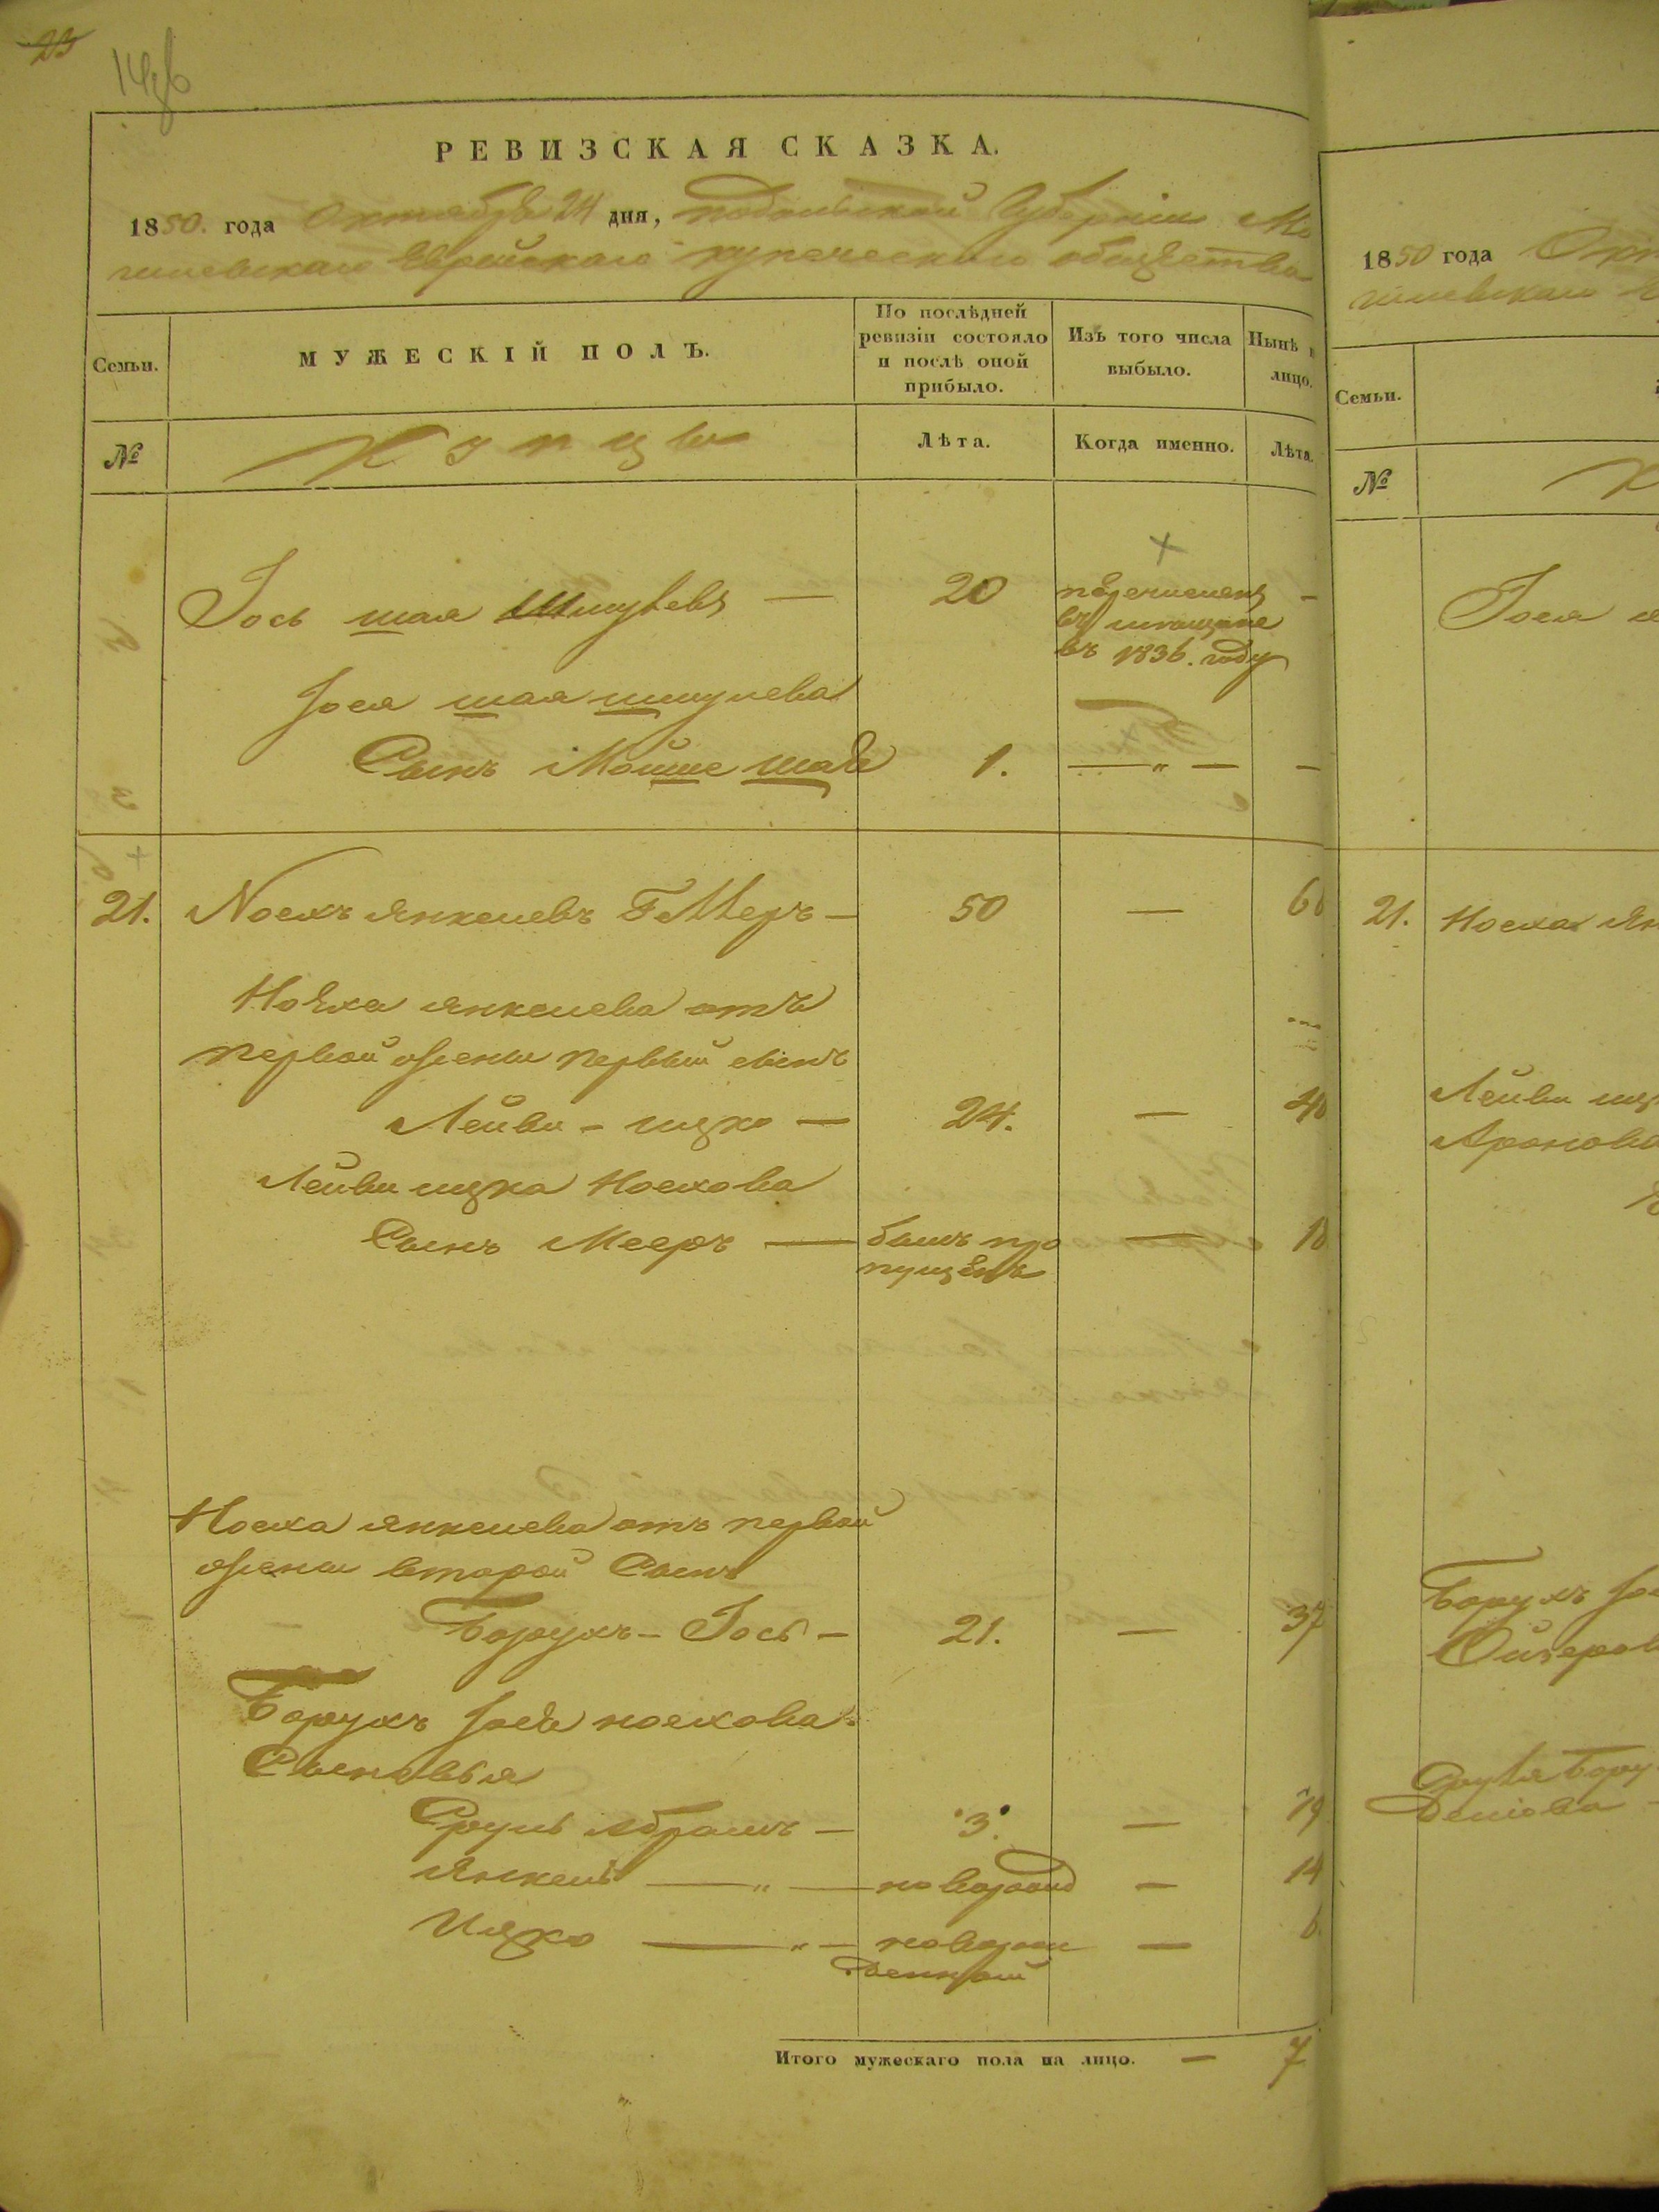 23
РЕВИЗСКАЯ СКАЗКА.
1850. года Октября 24 дня, Подольской Губернии Мо
гилевскаго Еврейскаго купеческаго общества
Семьи.
МУЖЕСКІЙ ПОЛЪ.
По послѣдней
ревизіи состояло
и послѣ оной
прибыло.
Изъ того числа
выбыло.
Нынѣ
лицо.
№
Купцы
Лѣта.
Когда именно.
Лѣта.
Іось шая Шмулевъ — 20 перечисленъ —
въ мещане
въ 1836. году
Іося шая шмулева
Сынъ Мойше 1. — „ — —
21. Ноехъ Янкелевъ — 50 — 60
Ноэха янкелева отъ
первой жены первый сынъ
Лейви - ицко — 24. — 40
Лейви ицка Ноехова
Сынъ Мееръ — былъ про — 18
пущенъ
Ноеха янкелева отъ первой
жены второй Сынъ
Борухъ - Іось — 21. — 37
Борухъ Іося ноехова
Сыновья
Сруль Абрамъ — 3. — 19
Янкель — „ — новорожд — 14
Ицко — „ — новорож — 6
денный
Итого мужескаго пола на лицо. — 7
1850 года
гилевскаго
Семьи.
№
Іося
21. Ноеха Ян
Лейви иц
Аронова
Борухъ Іо
Сруля Бору